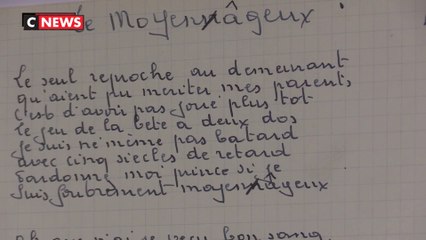 CNEWS
Le Moyennâgeux
Le seul reproche au demeurant
qu'aient pu mériter mes parents,
c'est d'avoir pas joué plus tot
Le jeu de la bête a deux dos
Je suis né même pas batard
avec cinq siecles de retard
Pardonne moi prince si je
Suis foutrement moyennageux